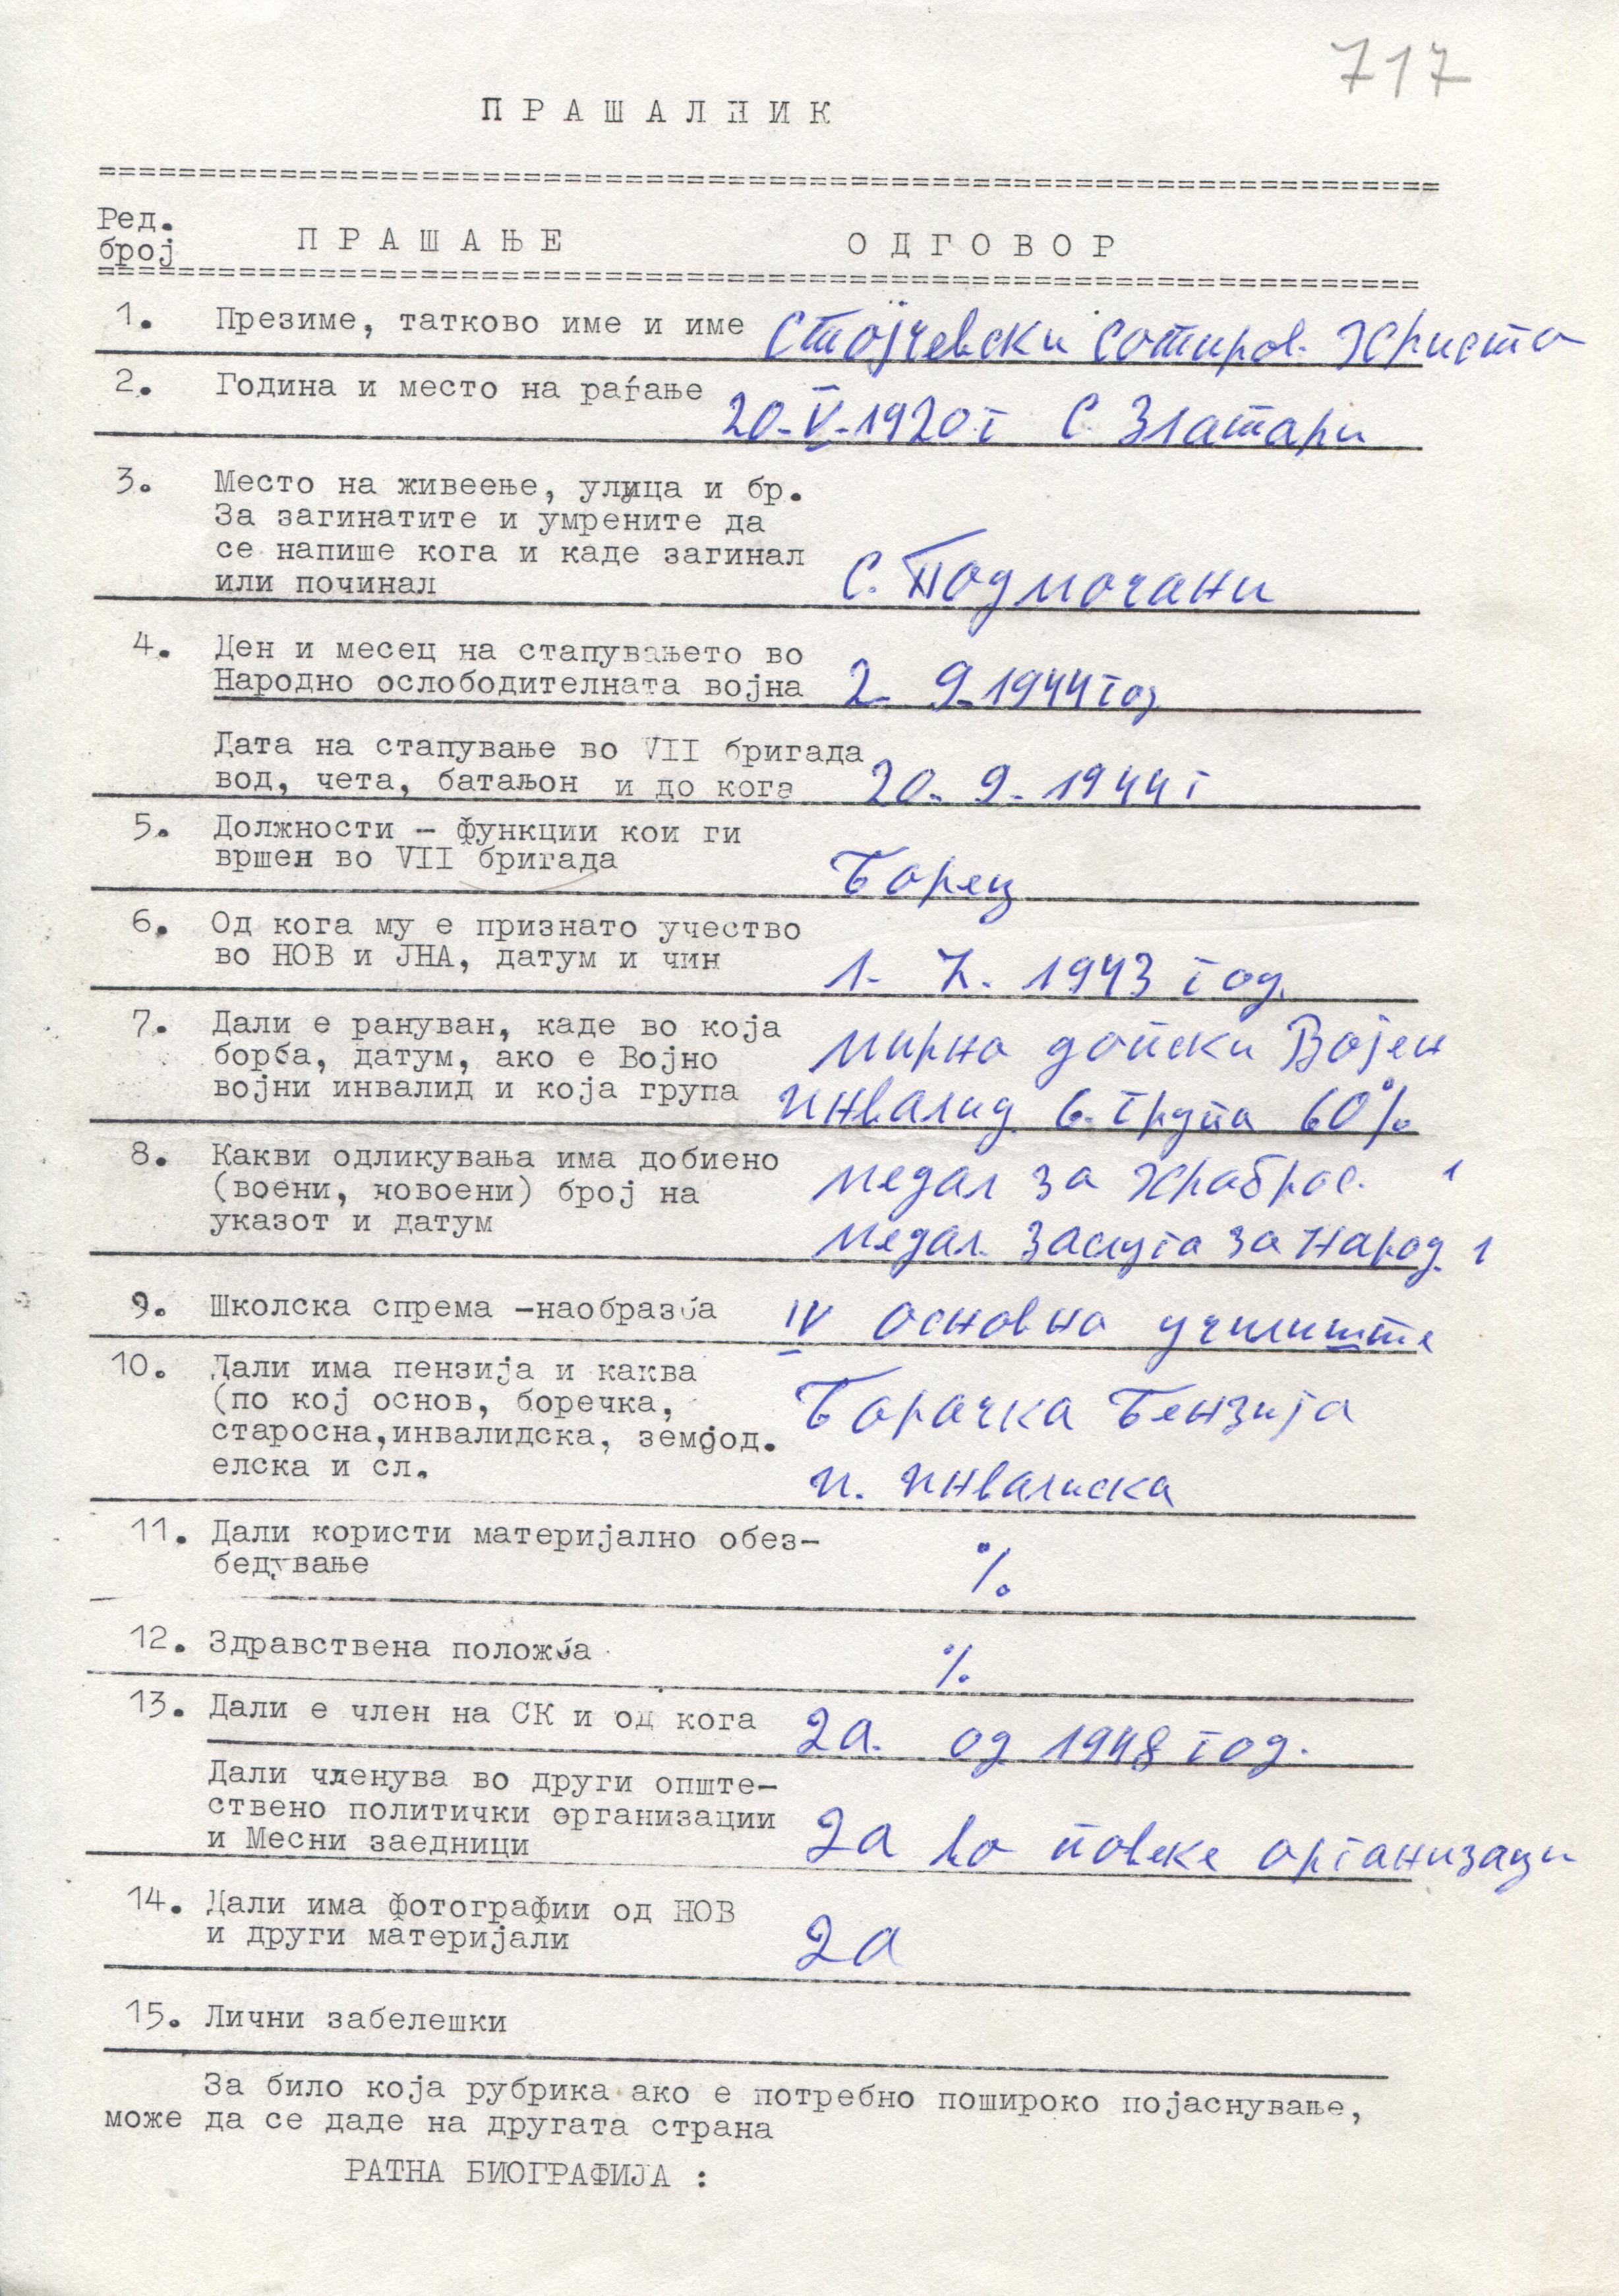 717
ПРАШАЛНИК
Ред. број ПРАШАЊЕ ОДГОВОР
1. Презиме, татково име и име Стојчевски Сотиров. Христо
2. Година и место на раѓање 20-V-1920 г С. Златари
3. Место на живеење, улица и бр.
За загинатите и умрените да
се напише кога и каде загинал
или починал С. Подмочани
4. Ден и месец на стапувањето во
Народно ослободителната војна 2- 9-1944 год
Дата на стапување во VII бригада
вод, чета, батаљон и до кога 20-9-1944 г
5. Должности - функции кои ги
вршел во VII бригада Борец
6. Од кога му е признато учество
во НОВ и ЈНА, датум и чин 1- X. 1943 год.
7. Дали е рануван, каде во која мирно допски Војен
борба, датум, ако е Војно
војни инвалид и која група инвалид 6. група 60%
8. Какви одликувања има добиено медал за храброс. 1
(воени, новоени) број на
указот и датум медал. заслуга за Народ. 1
9. Школска спрема -наобразба IV основно училиште
10. Дали има пензија и каква
(по кој основ, боречка, Борачка Пензија
старосна,инвалидска, земјод.
елска и сл. и. инвалиска
11. Дали користи материјално обез-
бедување %
12. Здравствена положба %
13. Дали е член на СК и од кога да. од 1948 год.
Дали членува во други опште-
ствено политички организации
и Месни заедници да во повеке организаци
14. Дали има фотографии од НОВ
и други материјали да
15. Лични забелешки
За било која рубрика ако е потребно пошироко појаснување,
може да се даде на другата страна
РАТНА БИОГРАФИЈА :